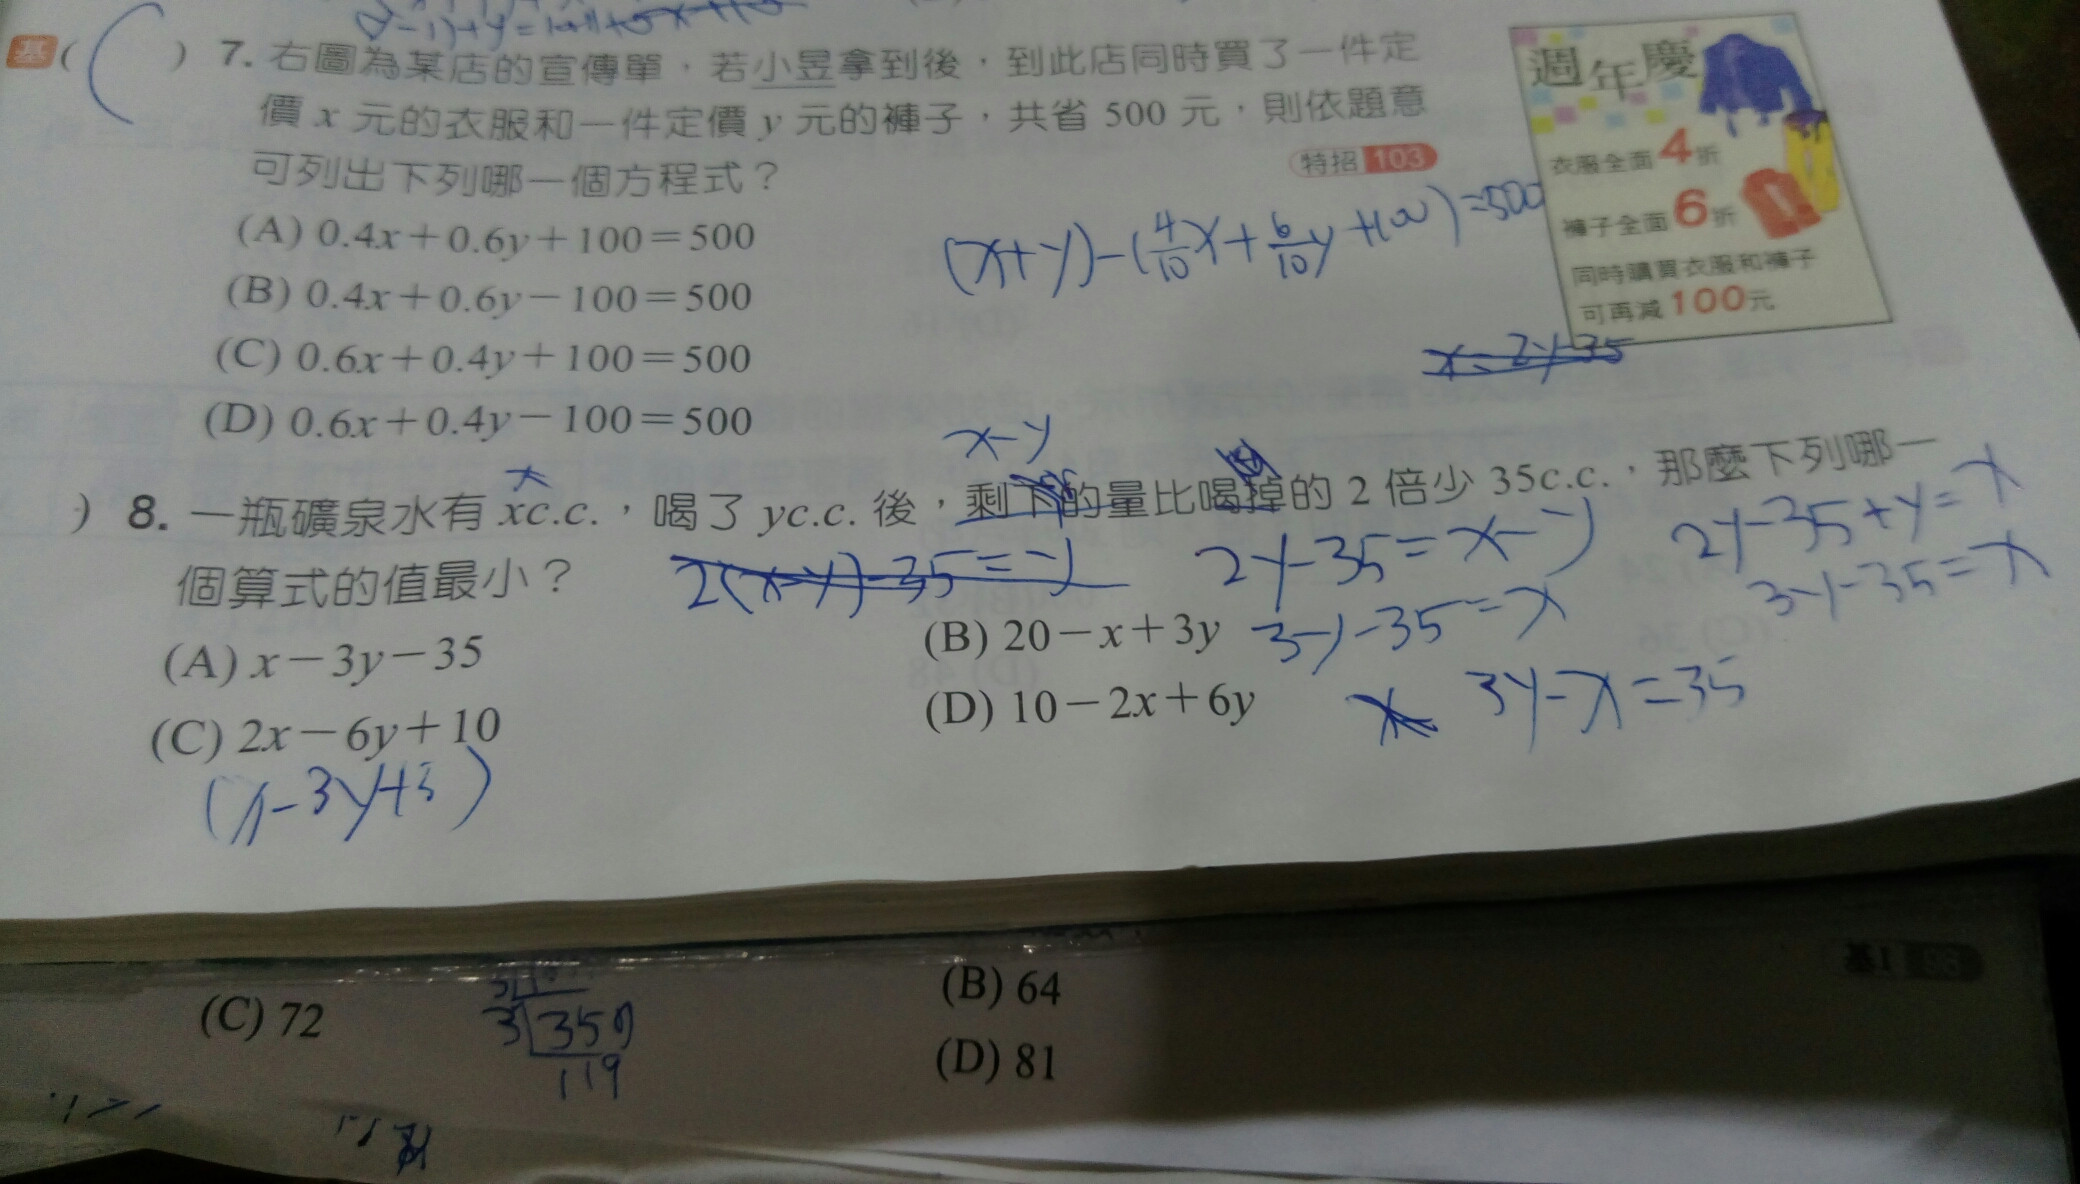 基( ) 7. 右圖為某店的宣傳單，若小昱拿到後，到此店同時買了一件定
價 x 元的衣服和一件定價 y 元的褲子，共省 500 元，則依題意
可列出下列哪一個方程式？
特招 103
(A) 0.4x+0.6y+100=500
(B) 0.4x+0.6y-100=500
(C) 0.6x+0.4y+100=500
(D) 0.6x+0.4y-100=500
(x+y)-(4/10x+6/10y+100)=500
週年慶
衣服全面4折
褲子全面6折
同時購買衣服和褲子
可再減100元
x-2y-35
x-y
x
) 8. 一瓶礦泉水有 xc.c.，喝了 yc.c. 後，剩下的量比喝掉的 2 倍少 35c.c.，那麼下列哪一
個算式的值最小？
2(x-y)-35=y
2y-35=x-y
2y-35+y=x
3y-35=x
(A) x-3y-35
(B) 20-x+3y
3y-35=x
(C) 2x-6y+10
(D) 10-2x+6y
3y-x=35
(x-3y+5)
(C) 72
(B) 64
3 359
119
(D) 81